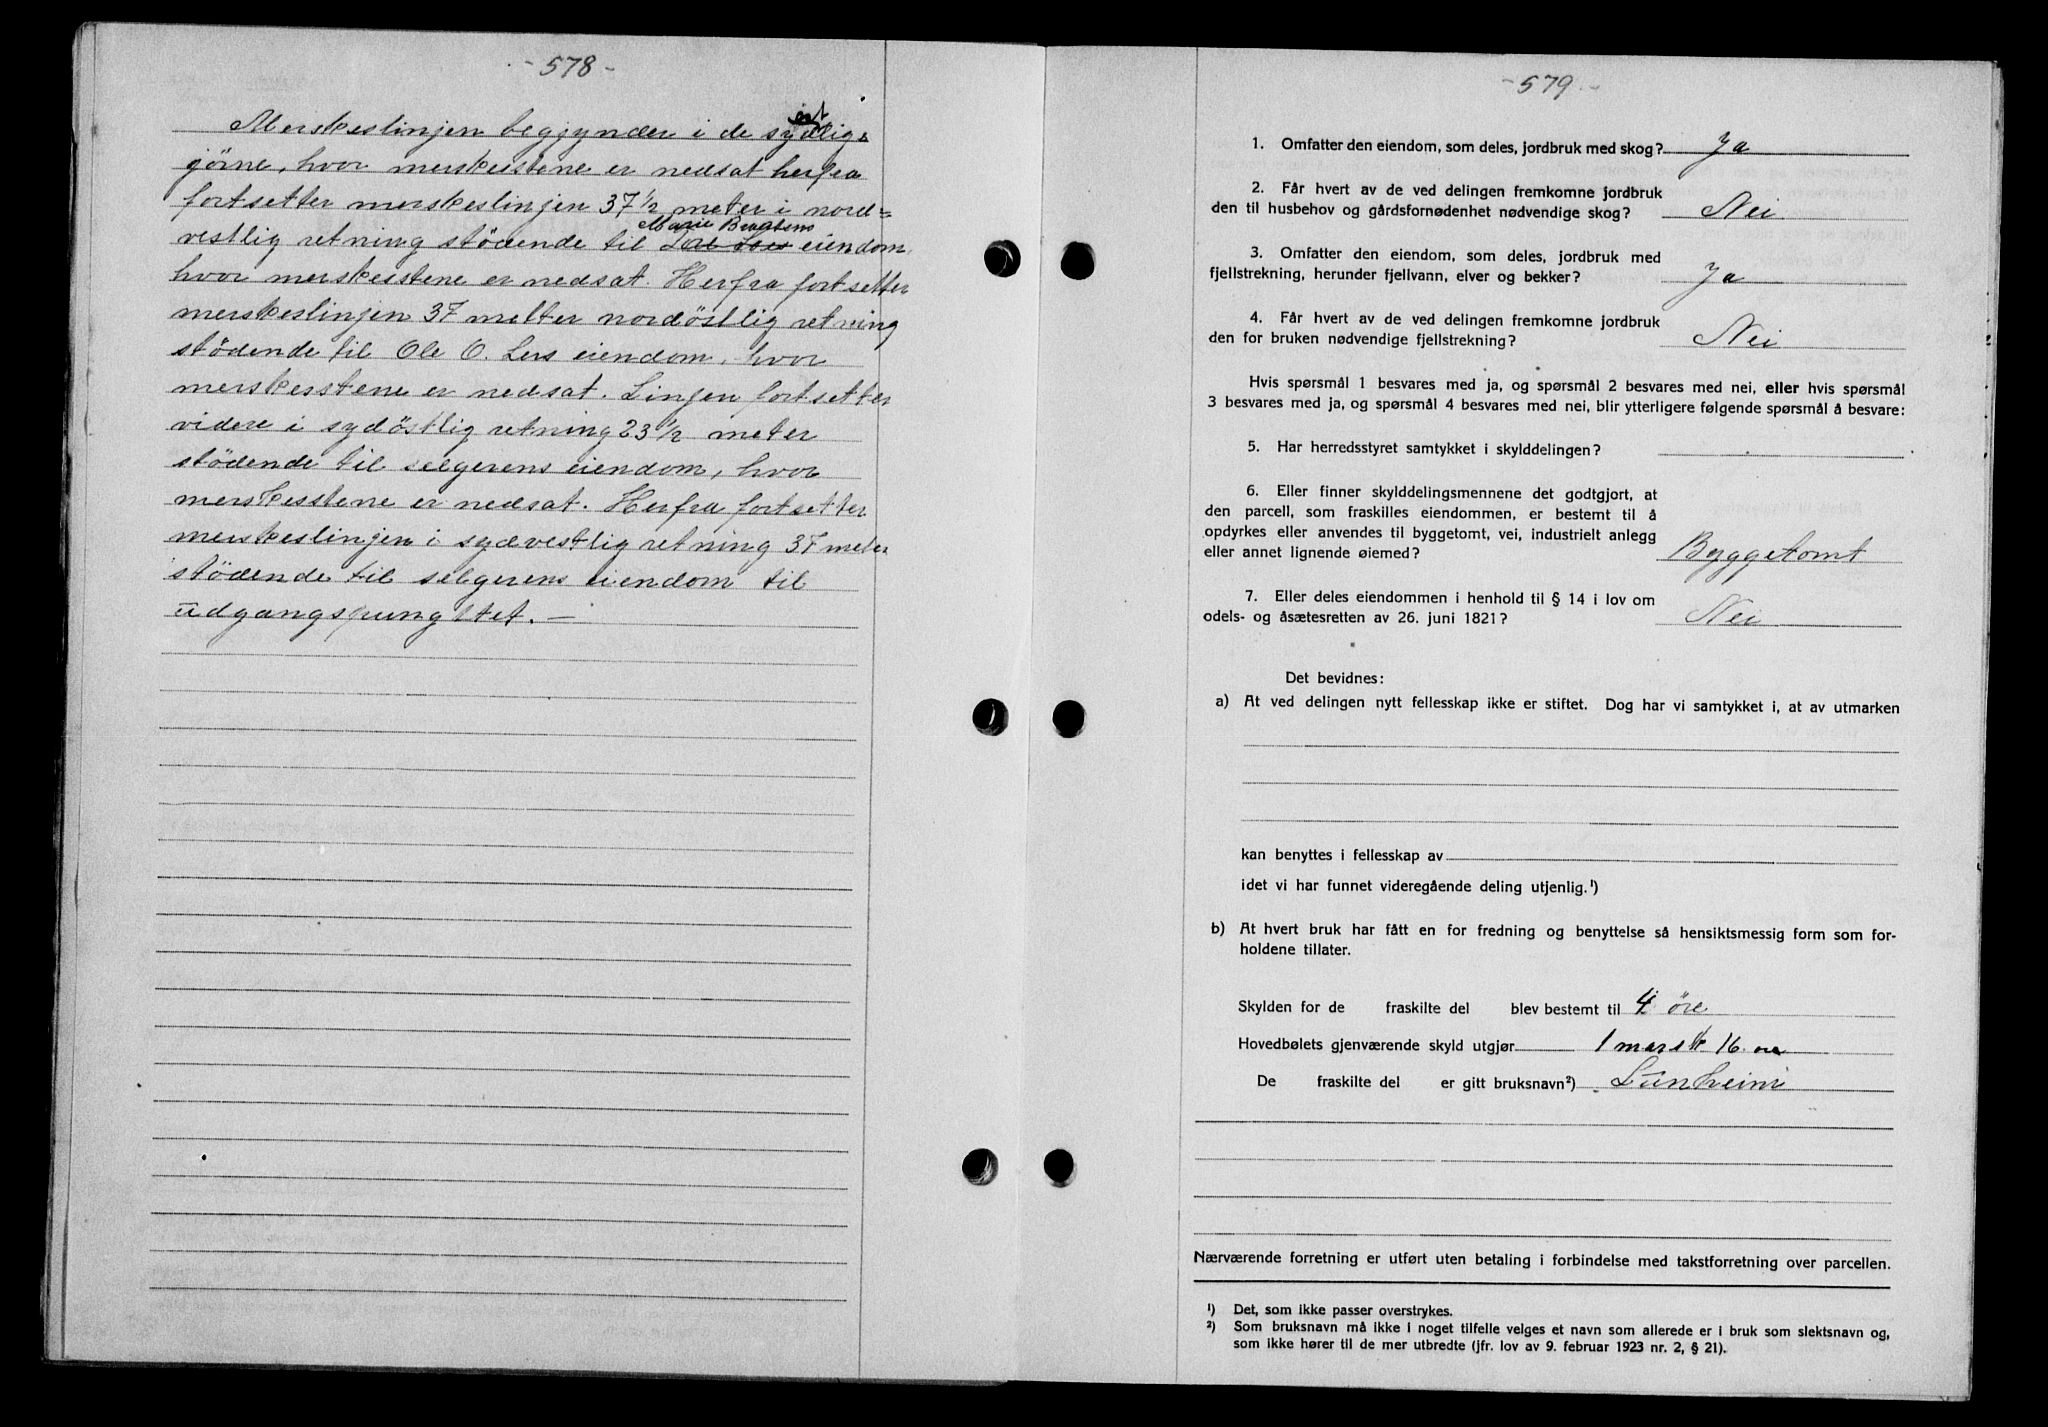 - 578 -
Merskeslinjen begjynder i de sydlig
øst
jörne, hvor merskesstene er nedsat herfra
fortsetter merskeslinjen 37 1/2 meter i nord=
Marie Bragtens
vestlig retning stödende til eiendom
hvor merskesstene er nedsat. Herfra fortsetter
merskeslinjen 37 melter nordöstlig retning
stödende til Ole O. Lers eiendom, hvor
merskesstene er nedsat. Linjen fortsetter
videre i sydöstlig retning 23 1/2 meter
stödende til selgerens eiendom, hvor
merskesstene er nedsat. Herfra fortsetter
merskeslinjen i sydvestlig retning 37 meter
stödende til selgerens eiendom til
udgangspungktet. —
- 579 -
1. Omfatter den eiendom, som deles, jordbruk med skog? Ja
2. Får hvert av de ved delingen fremkomne jordbruk
den til husbehov og gårdsfornødenhet nødvendige skog? Nei
3. Omfatter den eiendom, som deles, jordbruk med
fjellstrekning, herunder fjellvann, elver og bekker? Ja
4. Får hvert av de ved delingen fremkomne jordbruk
den for bruken nødvendige fjellstrekning? Nei
Hvis spørsmål 1 besvares med ja, og spørsmål 2 besvares med nei, eller hvis spørsmål
3 besvares med ja, og spørsmål 4 besvares med nei, blir ytterligere følgende spørsmål å besvare:
5. Har herredsstyret samtykket i skylddelingen?
6. Eller finner skylddelingsmennene det godtgjort, at
den parcell, som fraskilles eiendommen, er bestemt til å
opdyrkes eller anvendes til byggetomt, vei, industrielt anlegg
eller annet lignende øiemed? Byggetomt
7. Eller deles eiendommen i henhold til § 14 i lov om
odels- og åsætesretten av 26. juni 1821? Nei
Det bevidnes:
a) At ved delingen nytt fellesskap ikke er stiftet. Dog har vi samtykket i, at av utmarken
kan benyttes i fellesskap av
idet vi har funnet videregående deling utjenlig.¹)
b) At hvert bruk har fått en for fredning og benyttelse så hensiktsmessig form som for-
holdene tillater.
Skylden for de fraskilte del blev bestemt til 4 öre
Hovedbølets gjenværende skyld utgjør 1 mersk 16 øre
De fraskilte del er gitt bruksnavn²) Lünheim
Nærværende forretning er utført uten betaling i forbindelse med takstforretning over parcellen.
¹) Det, som ikke passer overstrykes.
²) Som bruksnavn må ikke i noget tilfelle velges et navn som allerede er i bruk som slektsnavn og,
som ikke hører til de mer utbredte (jfr. lov av 9. februar 1923 nr. 2, § 21).